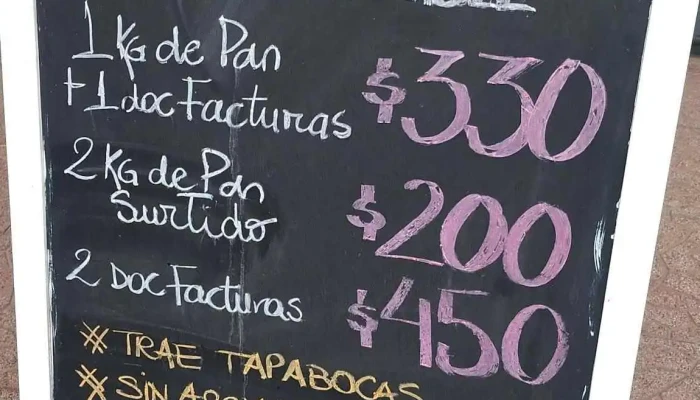 1 Kg de Pan
+ 1 doc Facturas $330
2 Kg de Pan
Surtido $200
2 Doc Facturas $450
# TRAE TAPABOCAS
# SIN